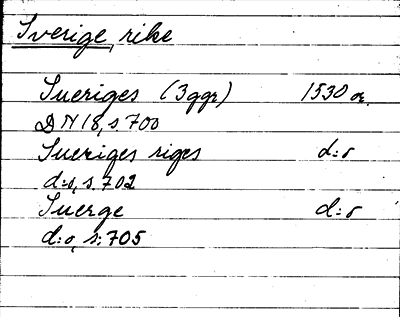 Sverige, rike
Sueriges (3ggr) 1530 or.
DN 18, s. 700
Sueriges riges d:o
d:o, s. 702
Suerge d:o
d:o, s. 705